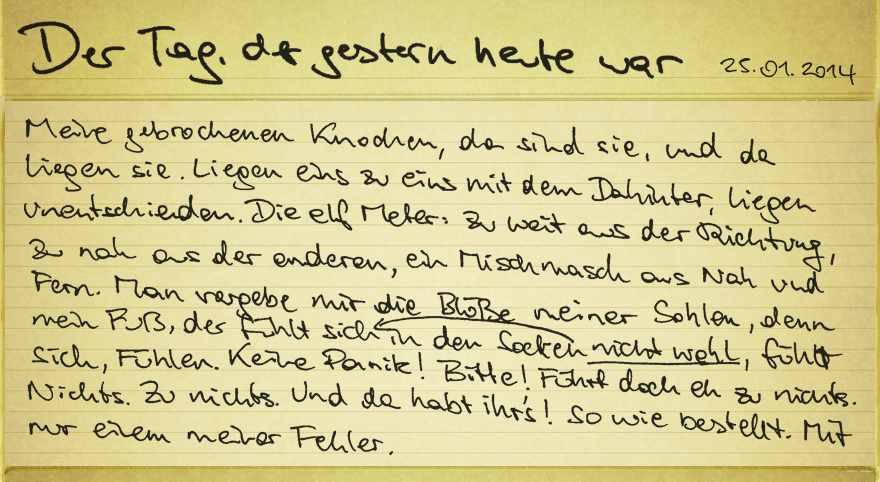 Der Tag, der gestern heute war 25.01.2014
Meine gebrochenen Knochen, da sind sie, und da
liegen sie. Liegen eins zu eins mit dem Dahinter, liegen
unentschieden. Die elf Meter: zu weit aus der Richtung,
zu nah aus der anderen, ein Mischmasch aus Nah und
Fern. Man vergebe mir die Blöße meiner Sohlen, denn
mein Fuß, der fühlt sich in den Socken nicht wohl, fühlt
sich, Fühlen. Keine Panik! Bitte! Führt doch eh zu nichts.
Nichts. Zu nichts. Und da habt ihr's! So wie bestellt. Mit
nur einem meiner Fehler.